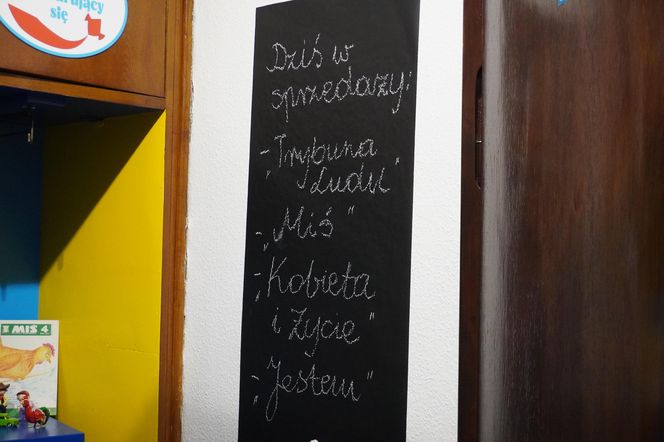 się
Dziś w
sprzedaży:
- „Trybuna
Ludu"
- „Miś"
- „Kobieta
i Życie"
- „Jestem"
MIŚ 4